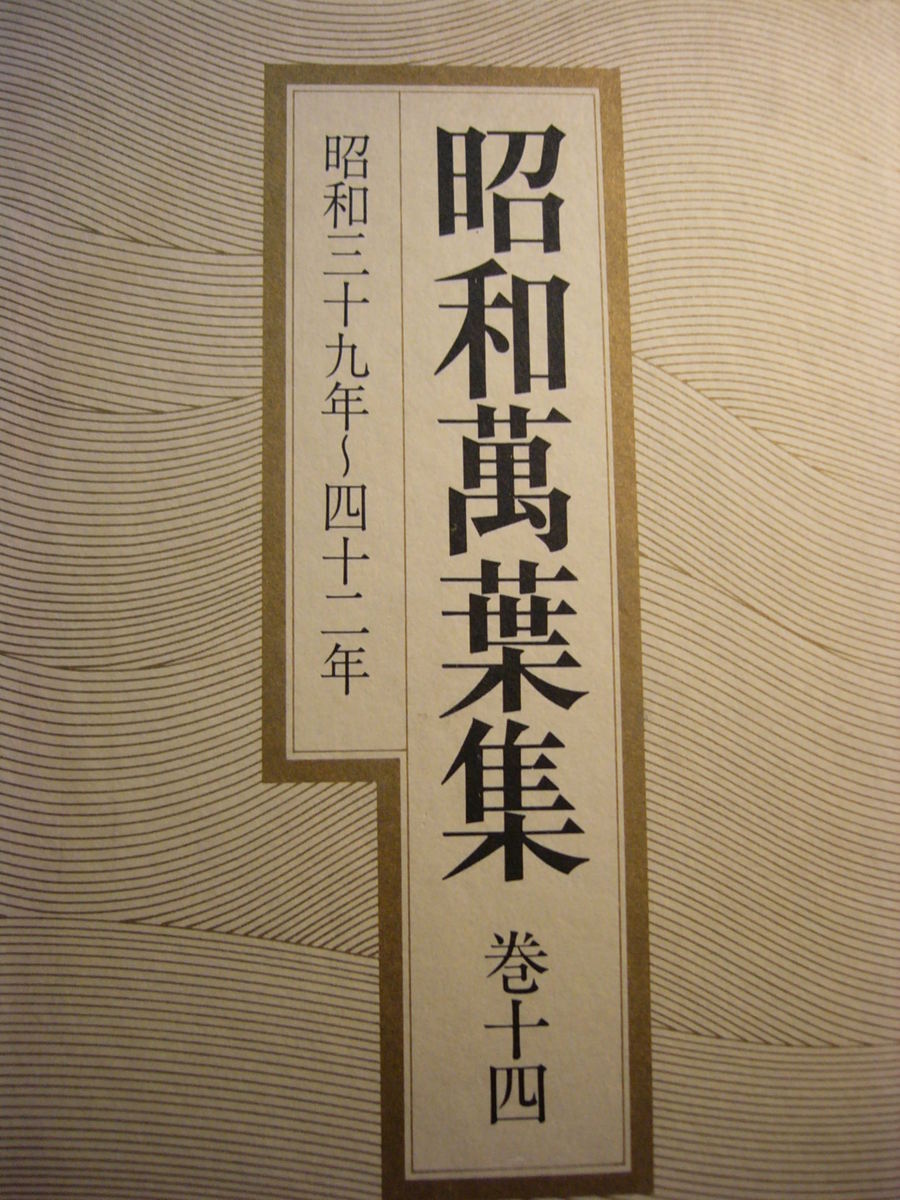 昭和萬葉集 巻十四
昭和三十九年～四十二年